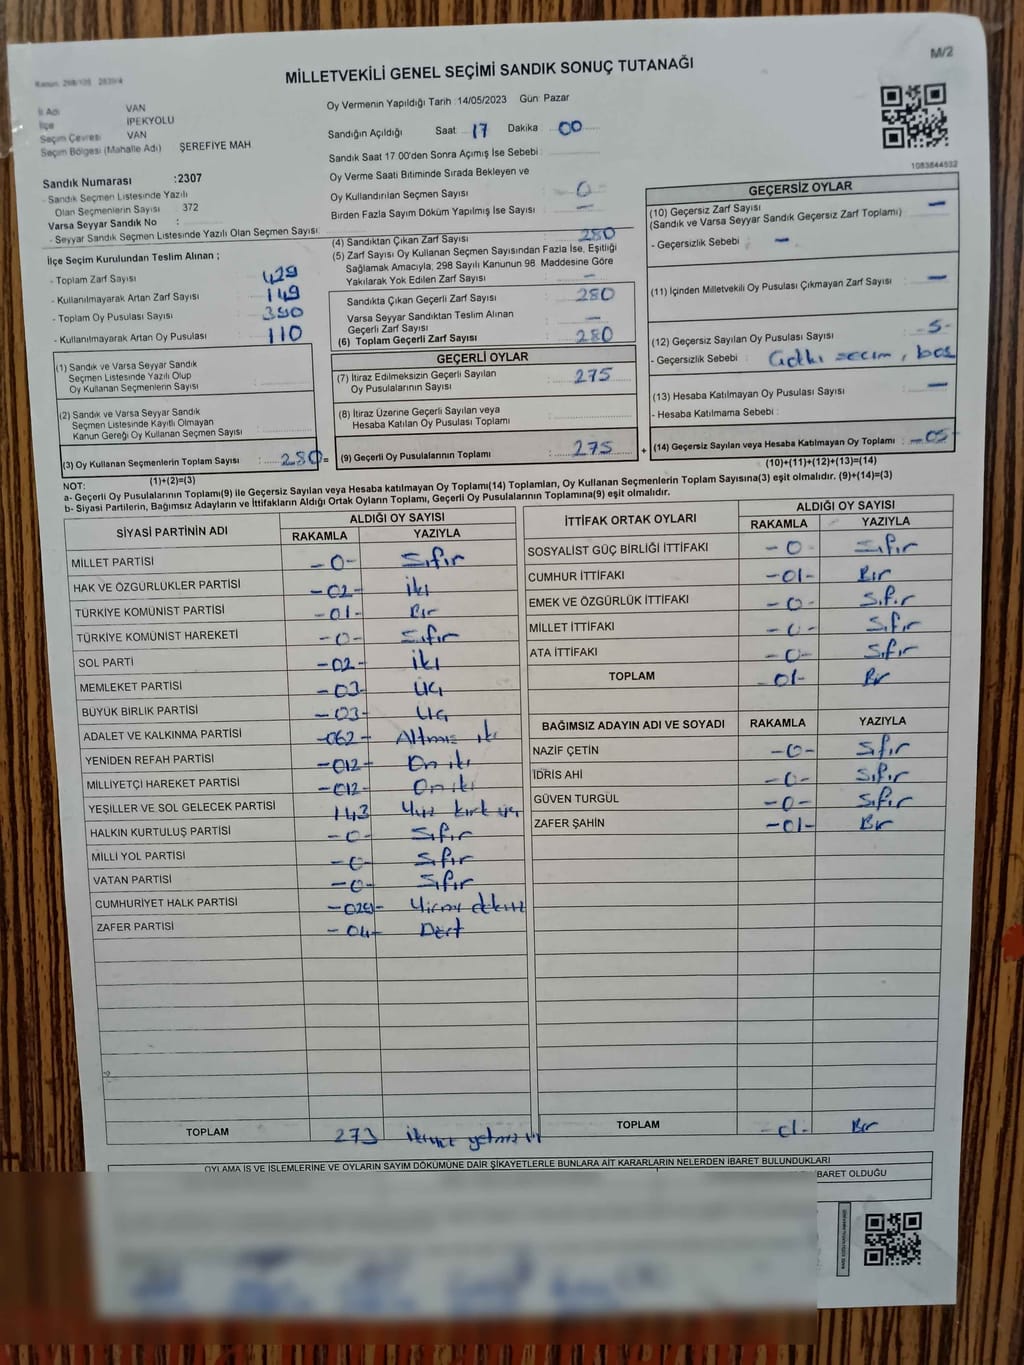 Kanun: 298/105 2839/4
M/2
MİLLETVEKİLİ GENEL SEÇİMİ SANDIK SONUÇ TUTANAĞI
İl Adı VAN
İlçe İPEKYOLU
Seçim Çevresi VAN
Seçim Bölgesi (Mahalle Adı) ŞEREFİYE MAH
Oy Vermenin Yapıldığı Tarih :14/05/2023 Gün: Pazar
Sandığın Açıldığı Saat : 17 Dakika : 00
Sandık Saat 17 00'den Sonra Açımış İse Sebebi :
Oy Verme Saati Bitiminde Sırada Bekleyen ve
Oy Kullandırılan Seçmen Sayısı : 0
Birden Fazla Sayım Döküm Yapılmış İse Sayısı : -
1083844532
Sandık Numarası :2307
- Sandık Seçmen Listesinde Yazılı
Olan Seçmenlerin Sayısı : 372
Varsa Seyyar Sandık No :
- Seyyar Sandık Seçmen Listesinde Yazılı Olan Seçmen Sayısı:
İlçe Seçim Kurulundan Teslim Alınan ;
- Toplam Zarf Sayısı : 429
- Kullanılmayarak Artan Zarf Sayısı : 149
- Toplam Oy Pusulası Sayısı : 390
- Kullanılmayarak Artan Oy Pusulası : 110
(1) Sandık ve Varsa Seyyar Sandık
Seçmen Listesinde Yazılı Olup
Oy Kullanan Seçmenlerin Sayısı :
(2) Sandık ve Varsa Seyyar Sandık
Seçmen Listesinde Kayıtlı Olmayan
Kanun Gereği Oy Kullanan Seçmen Sayısı :
(3) Oy Kullanan Seçmenlerin Toplam Sayısı : 280 =
(1)+(2)=(3)
(4) Sandıktan Çıkan Zarf Sayısı : 280
(5) Zarf Sayısı Oy Kullanan Seçmen Sayısından Fazla İse, Eşitliği
Sağlamak Amacıyla, 298 Sayılı Kanunun 98. Maddesine Göre
Yakılarak Yok Edilen Zarf Sayısı : -
Sandıkta Çıkan Geçerli Zarf Sayısı : 280
Varsa Seyyar Sandıktan Teslim Alınan
Geçerli Zarf Sayısı : -
(6) Toplam Geçerli Zarf Sayısı : 280
GEÇERLİ OYLAR
(7) İtiraz Edilmeksizin Geçerli Sayılan
Oy Pusulalarının Sayısı : 275
(8) İtiraz Üzerine Geçerli Sayılan veya
Hesaba Katılan Oy Pusulası Toplamı :
(9) Geçerli Oy Pusulalarının Toplamı : 275 +
GEÇERSİZ OYLAR
(10) Geçersiz Zarf Sayısı : -
(Sandık ve Varsa Seyyar Sandık Geçersiz Zarf Toplamı)
- Geçersizlik Sebebi : -
(11) İçinden Milletvekili Oy Pusulası Çıkmayan Zarf Sayısı : -
(12) Geçersiz Sayılan Oy Pusulası Sayısı : -5-
- Geçersizlik Sebebi : seçim, boş
(13) Hesaba Katılmayan Oy Pusulası Sayısı : -
- Hesaba Katılmama Sebebi :
(14) Geçersiz Sayılan veya Hesaba Katılmayan Oy Toplamı : -05-
(10)+(11)+(12)+(13)=(14)
NOT:
a- Geçerli Oy Pusulalarının Toplamı(9) ile Geçersiz Sayılan veya Hesaba katılmayan Oy Toplamı(14) Toplamları, Oy Kullanan Seçmenlerin Toplam Sayısına(3) eşit olmalıdır. (9)+(14)=(3)
b- Siyasi Partilerin, Bağımsız Adayların ve İttifakların Aldığı Ortak Oyların Toplamı, Geçerli Oy Pusulalarının Toplamına(9) eşit olmalıdır.
SİYASİ PARTİNİN ADI ALDIĞI OY SAYISI
RAKAMLA YAZIYLA
MİLLET PARTİSİ -0- Sıfır
HAK VE ÖZGÜRLÜKLER PARTİSİ -02- İki
TÜRKİYE KOMÜNİST PARTİSİ -01- Bir
TÜRKİYE KOMÜNİST HAREKETİ -0- Sıfır
SOL PARTİ -02- İki
MEMLEKET PARTİSİ -03- Üç
BÜYÜK BİRLİK PARTİSİ -03- Üç
ADALET VE KALKINMA PARTİSİ -062- Altmış iki
YENİDEN REFAH PARTİSİ -012- On iki
MİLLİYETÇİ HAREKET PARTİSİ -012- On iki
YEŞİLLER VE SOL GELECEK PARTİSİ 143 Yüz kırk üç
HALKIN KURTULUŞ PARTİSİ -0- Sıfır
MİLLİ YOL PARTİSİ -0- Sıfır
VATAN PARTİSİ -0- Sıfır
CUMHURİYET HALK PARTİSİ -029- Yirmi dokuz
ZAFER PARTİSİ -04- Dört
TOPLAM 273 İkiyüz yetmiş üç
İTTİFAK ORTAK OYLARI ALDIĞI OY SAYISI
RAKAMLA YAZIYLA
SOSYALİST GÜÇ BİRLİĞİ İTTİFAKI -0- Sıfır
CUMHUR İTTİFAKI -01- Bir
EMEK VE ÖZGÜRLÜK İTTİFAKI -0- Sıfır
MİLLET İTTİFAKI -0- Sıfır
ATA İTTİFAKI -0- Sıfır
TOPLAM -01- Bir
BAĞIMSIZ ADAYIN ADI VE SOYADI RAKAMLA YAZIYLA
NAZİF ÇETİN -0- Sıfır
İDRİS AHİ -0- Sıfır
GÜVEN TURGÜL -0- Sıfır
ZAFER ŞAHİN -01- Bir
TOPLAM -01- Bir
OYLAMA İŞ VE İŞLEMLERİNE VE OYLARIN SAYIM DÖKÜMÜNE DAİR ŞİKAYETLERLE BUNLARA AİT KARARLARIN NELERDEN İBARET BULUNDUKLARI
BARET OLDUĞU